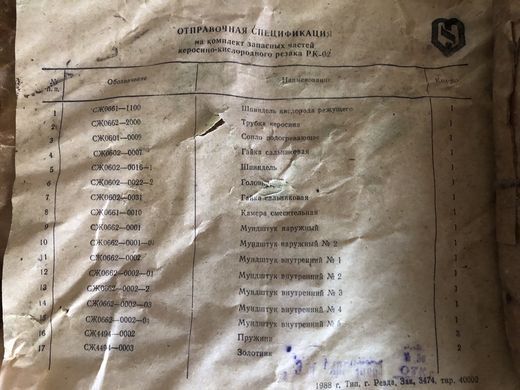 ОТПРАВОЧНАЯ СПЕЦИФИКАЦИЯ
на комплект запасных частей
керосино-кислородного резака РК-02
№ п. п. Обозначение Наименование Кол-во
1 СЖ0661—1100 Шпиндель кислорода режущего 1
2 СЖ0662—2000 Трубка керосина 1
3 СЖ0601—0009 Сопло подогревающее 1
4 СЖ0602—0007 Гайка сальниковая 1
5 СЖ0602—0016—1 Шпиндель 1
6 СЖ0602—0022—2 1
7 СЖ0602—0031 Гайка сальниковая 1
8 СЖ0661—0010 Камера смесительная 1
9 СЖ0662—0001 Мундштук наружный 1
10 СЖ0662—0001—01 Мундштук наружный № 2 1
11 СЖ0662—0002 Мундштук внутренний № 1 1
12 СЖ0662—0002—01 Мундштук внутренний № 2 1
13 СЖ0662—0002—2 Мундштук внутренний № 3 1
14 СЖ0662—0002—03 Мундштук внутренний № 4 1
15 СЖ0662—0002—04 Мундштук внутренний № 5 1
16 СЖ4494—0002 Пружина 3
17 СЖ4494—0003 Золотник 2
ОТК
1988 г. Тип. г. Ревда, Зак. 3474, тир. 40000